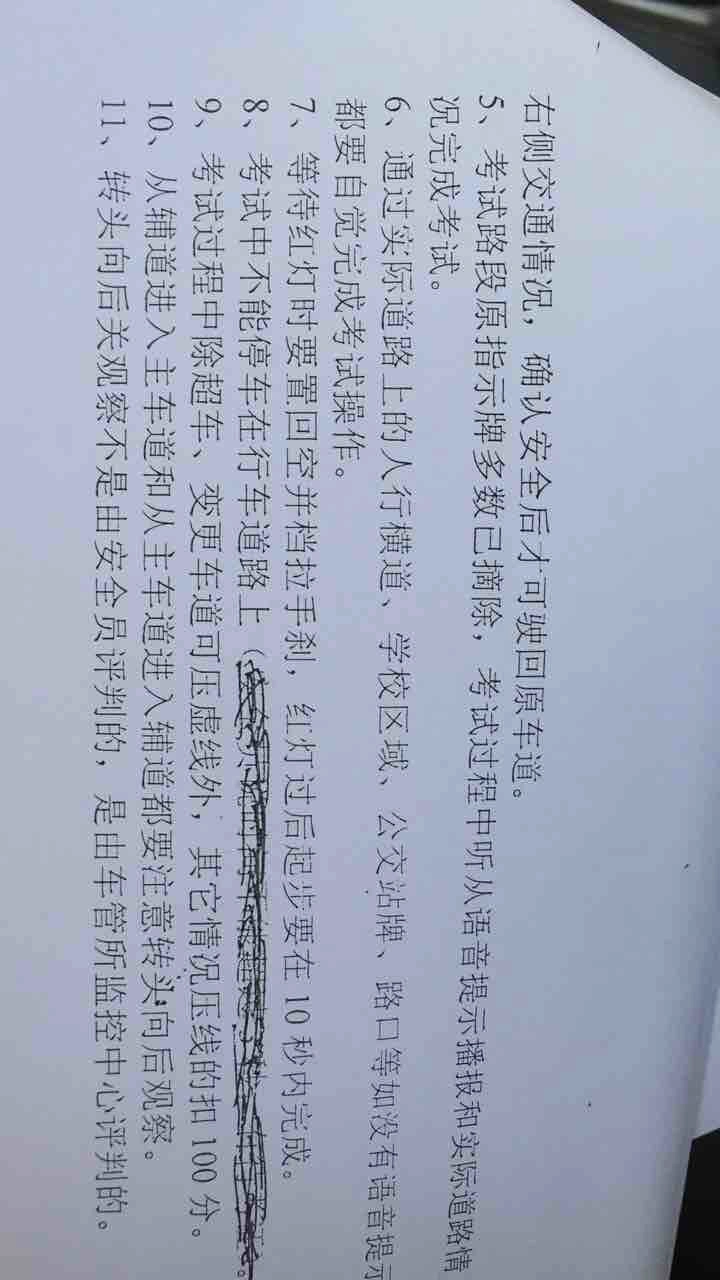 右侧交通情况，确认安全后才可驶回原车道。
5、考试路段原指示牌多数已摘除，考试过程中听从语音提示播报和实际道路情
况完成考试。
6、通过实际道路上的人行横道、学校区域、公交站牌、路口等如没有语音提示
都要自觉完成考试操作。
7、等待红灯时要置回空并档拉手刹，红灯过后起步要在 10 秒内完成。
8、考试中不能停车在行车道路上（
9、考试过程中除超车、变更车道可压虚线外，其它情况压线的扣 100 分。
10、从辅道进入主车道和从主车道进入辅道都要注意转头向后观察。
11、转头向后关观察不是由安全员评判的，是由车管所监控中心评判的。